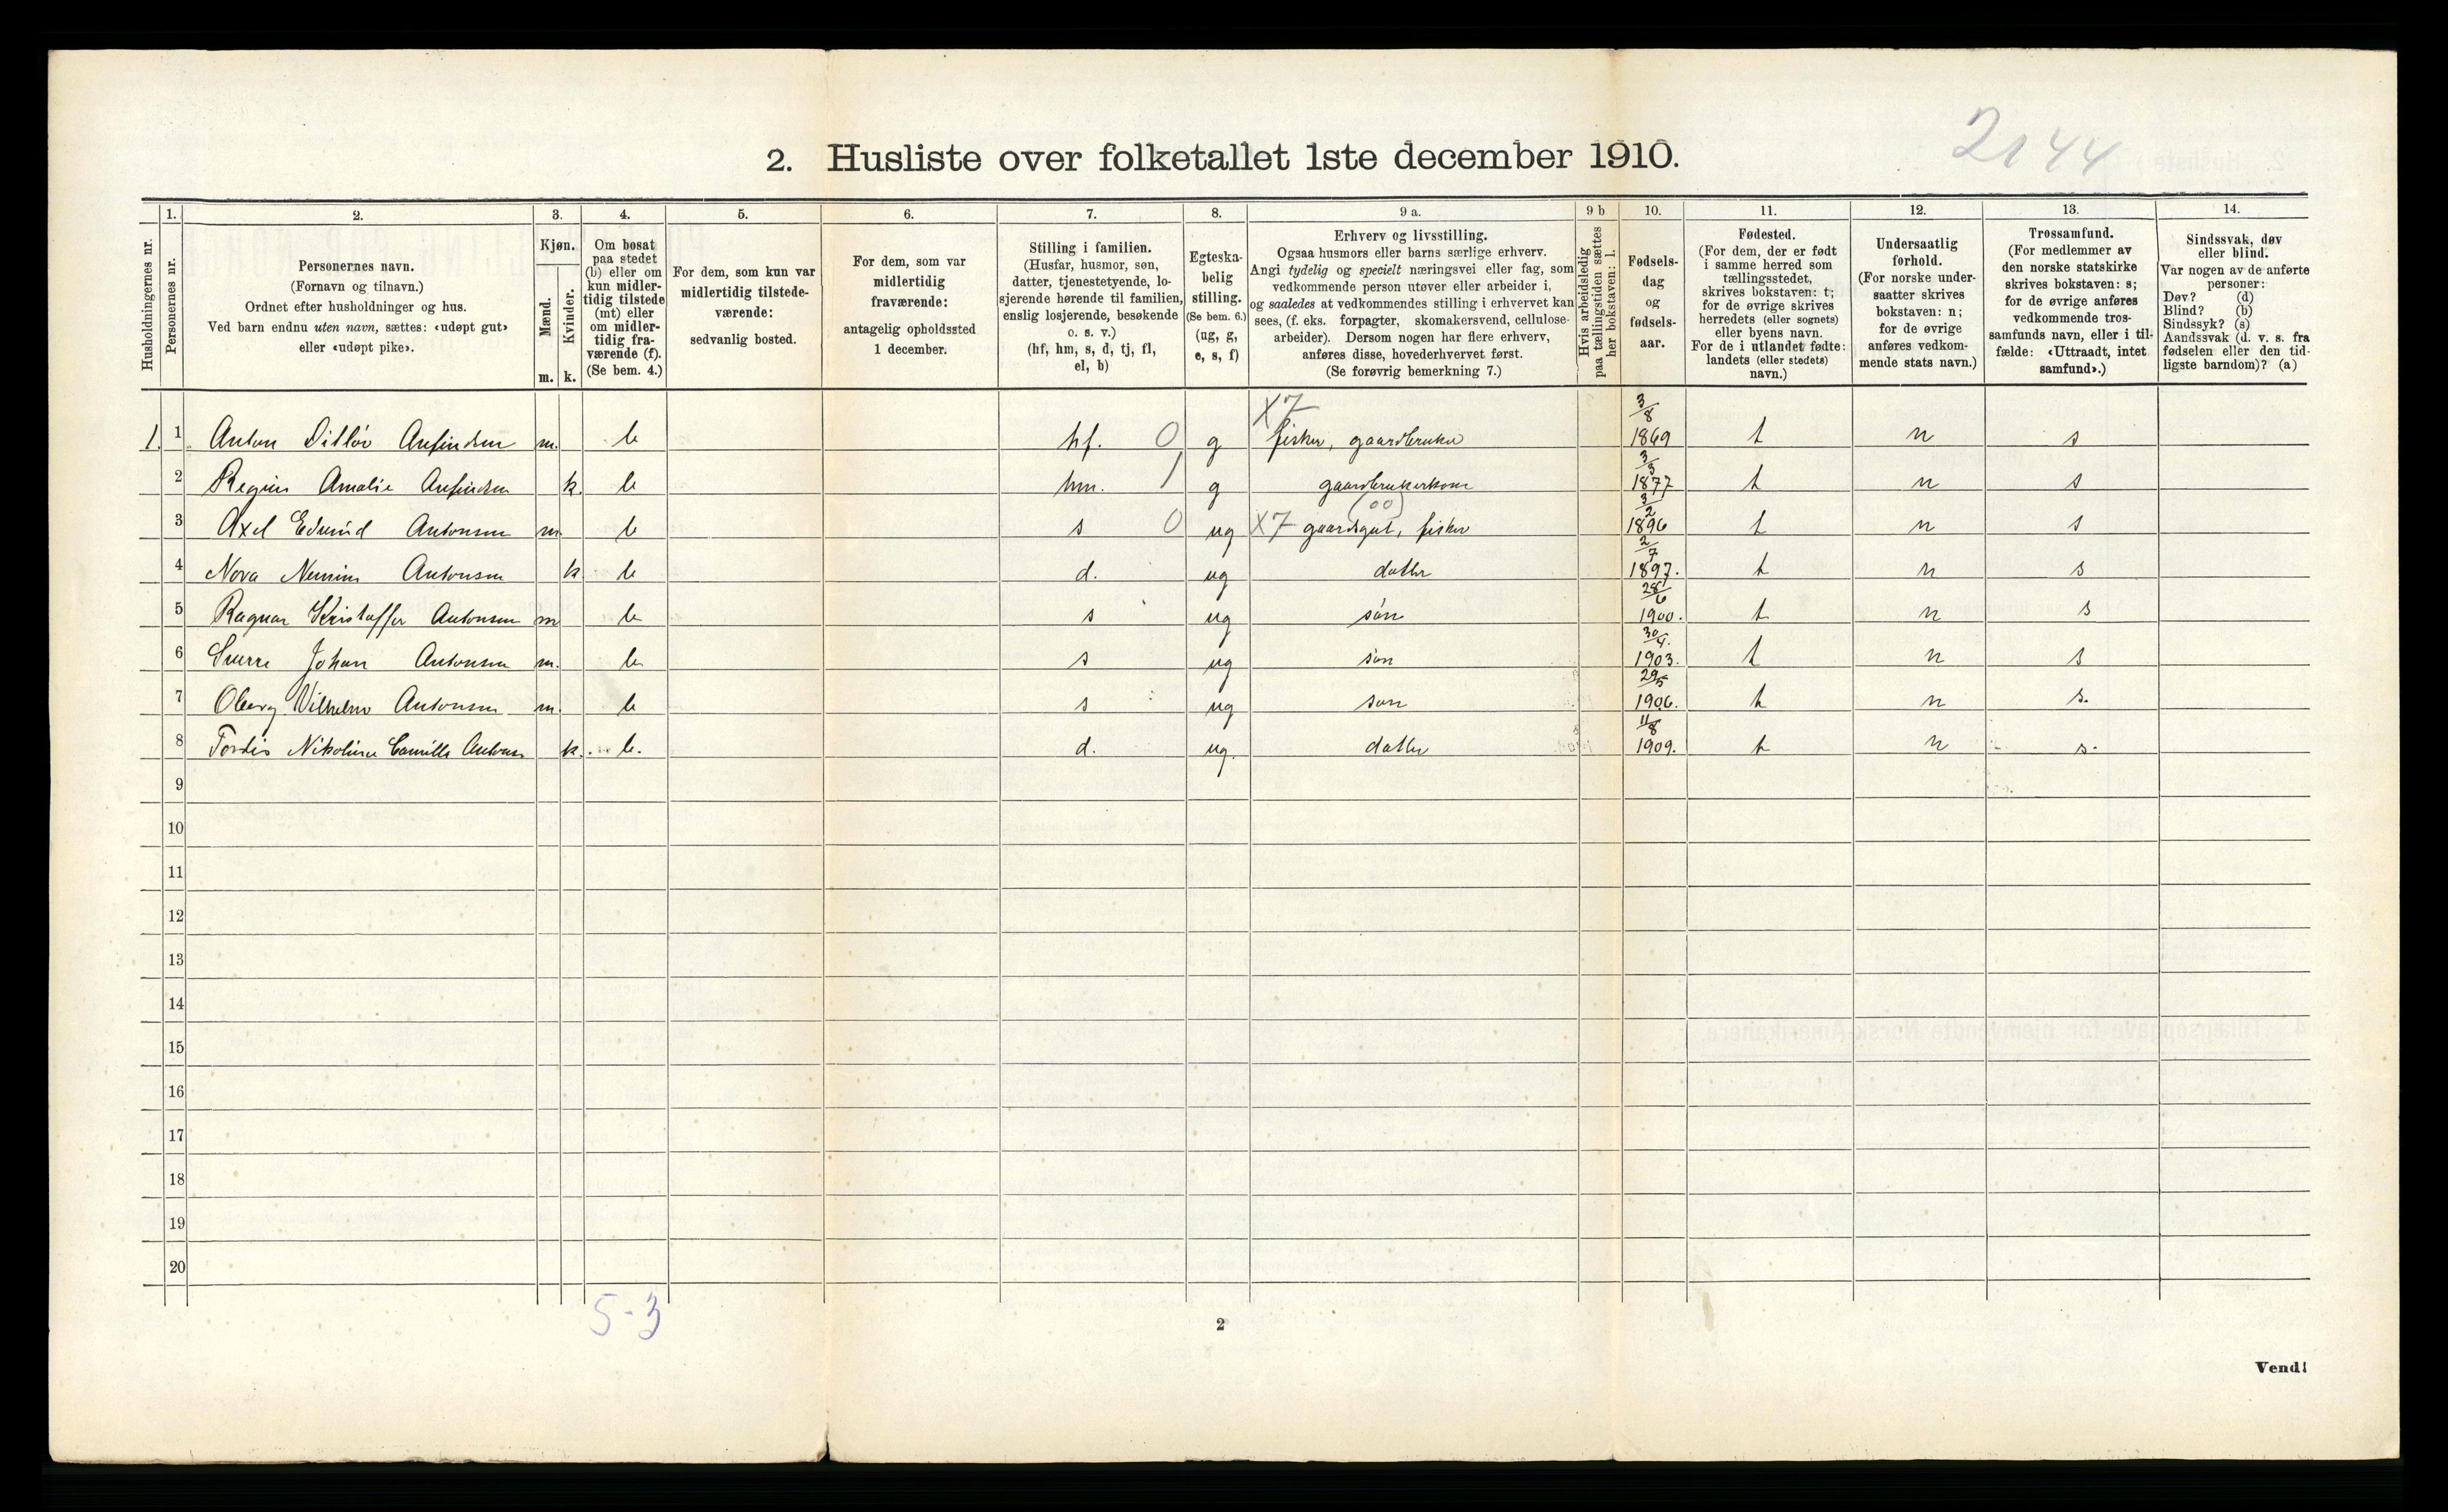 2144
2. Husliste over folketallet 1ste december 1910.
Husholdningernes nr.
1. Personernes nr.
2. Personernes navn.
(Fornavn og tilnavn.)
Ordnet efter husholdninger og hus.
Ved barn endnu uten navn, sættes: «udøpt gut»
eller «udøpt pike».
3. Kjøn.
Mænd. m.
Kvinder. k.
4. Om bosat
paa stedet
(b) eller om
kun midler-
tidig tilstede
(mt) eller
om midler-
tidig fra-
værende (f).
(Se bem. 4.)
5. For dem, som kun var
midlertidig tilstede-
værende:
sedvanlig bosted.
6. For dem, som var
midlertidig
fraværende:
antagelig opholdssted
1 december.
7. Stilling i familien.
(Husfar, husmor, søn,
datter, tjenestetyende, lo-
sjerende hørende til familien,
enslig losjerende, besøkende
o. s. v.)
(hf, hm, s, d, tj, fl,
el, b)
8. Egteska-
belig
stilling.
(Se bem. 6.)
(ug, g,
e, s, f)
9 a. Erhverv og livsstilling.
Ogsaa husmors eller barns særlige erhverv.
Angi tydelig og specielt næringsvei eller fag, som
vedkommende person utøver eller arbeider i,
og saaledes at vedkommendes stilling i erhvervet kan
sees, (f. eks. forpagter, skomakersvend, cellulose-
arbeider). Dersom nogen har flere erhverv,
anføres disse, hovederhvervet først.
(Se forøvrig bemerkning 7.)
9 b Hvis arbeidsledig
paa tællingstiden sættes
her bokstaven: l.
10. Fødsels-
dag
og
fødsels-
aar.
11. Fødested.
(For dem, der er født
i samme herred som
tællingsstedet,
skrives bokstaven: t;
for de øvrige skrives
herredets (eller sognets)
eller byens navn.
For de i utlandet fødte:
landets (eller stedets)
navn.)
12. Undersaatlig
forhold.
(For norske under-
saatter skrives
bokstaven: n;
for de øvrige
anføres vedkom-
mende stats navn.)
13. Trossamfund.
(For medlemmer av
den norske statskirke
skrives bokstaven: s;
for de øvrige anføres
vedkommende tros-
samfunds navn, eller i til-
fælde: «Uttraadt, intet
samfund».)
14. Sindssvak, døv
eller blind.
Var nogen av de anførte
personer:
Døv? (d)
Blind? (b)
Sindssyk? (s)
Aandssvak (d. v. s. fra
fødselen eller den tid-
ligste barndom)? (a)
1. 1 Anton Ditløv Anfindsen m. b hf. 0 g X7 fisker, gaardbruker 3/8 1869 t n s
2 Regine Amalie Anfindsen k. b hm. 1 g gaardbrukerkone 3/3 1877 t n s
3 Axel Edvind Antonsen m b s 0 ug X7 gaardsgut, fisker (00) 3/2 1896 t n s
4 Nova Antonsen k b d. ug datter 2/7 1897. t n s
5 Ragnar Kristoffer Antonsen m b s ug søn 28/6 1900. t n s
6 Sverre Johan Antonsen m. b s ug søn 30/4. 1903. t n s
7 Vilhelm Antonsen m. b s ug søn 29/5 1906. t n s.
8 Tordis Nikoline Camilla Antons k. b. d. ug. datter 11/8 1909. t n s.
9
10
11
12
13
14
15
16
17
18
19
20
5-3
2
Vend!